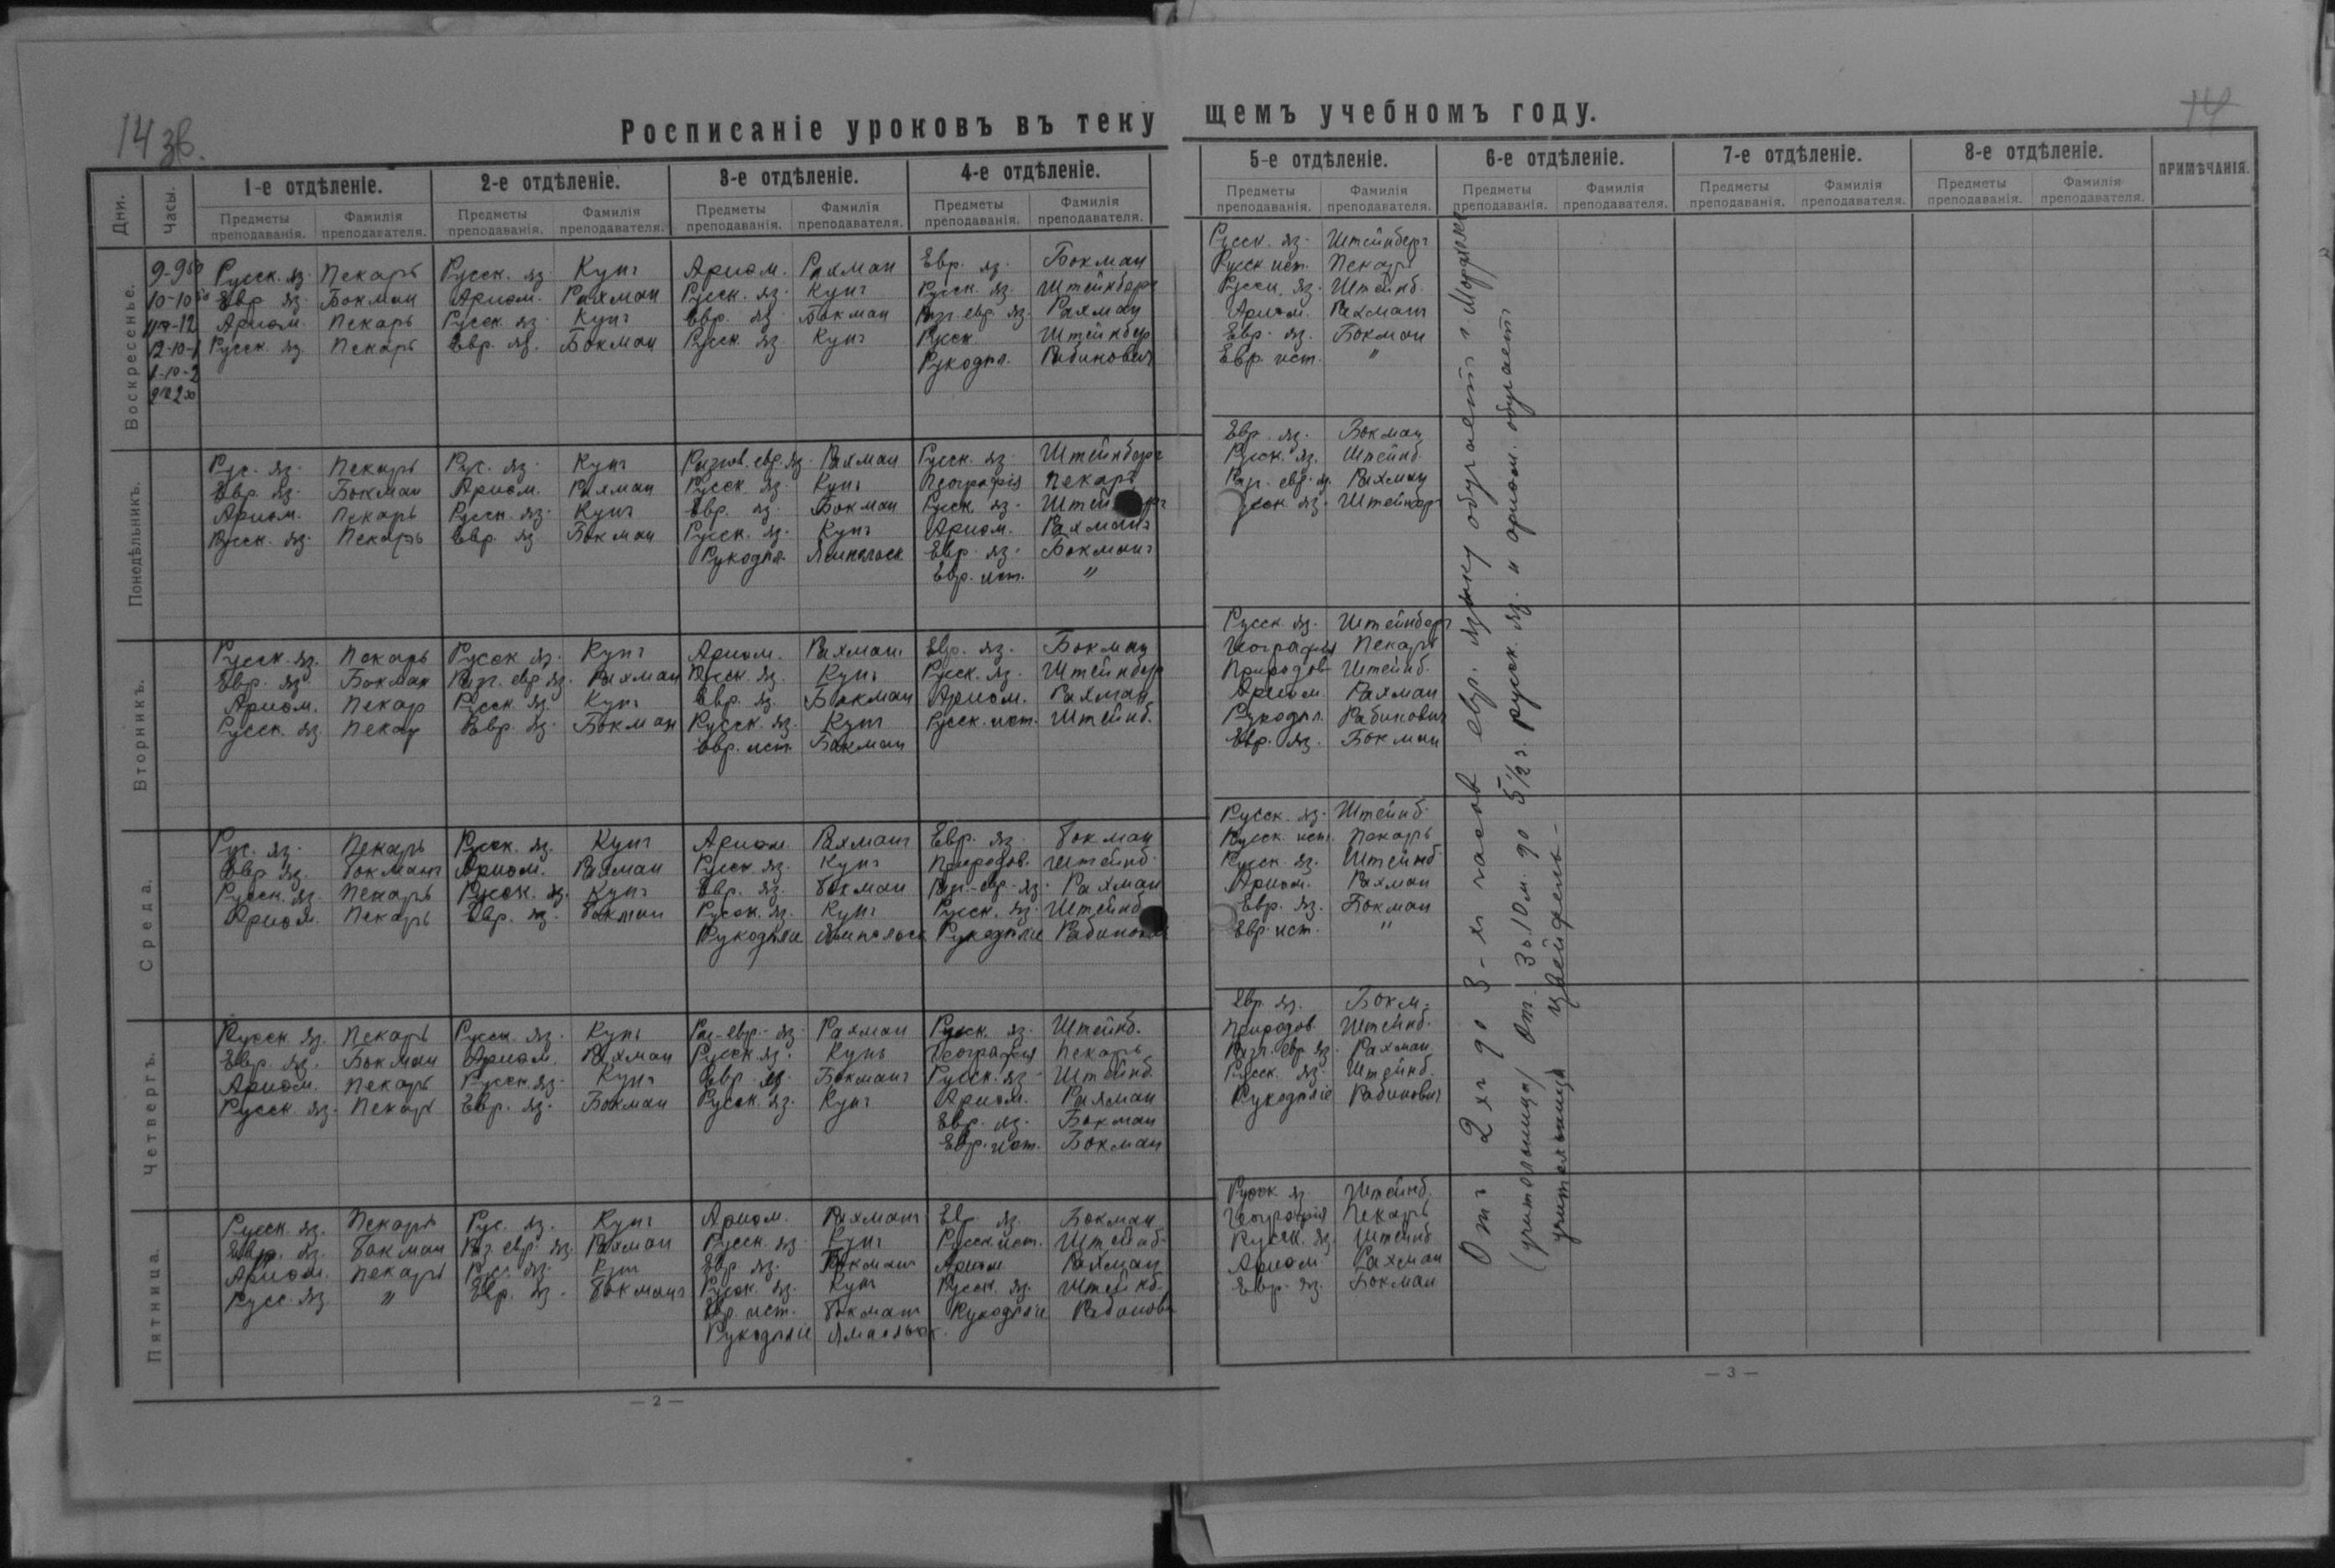 14 зв.
14
Росписаніе уроковъ въ теку щемъ учебномъ году.
Дни. Часы. 1-е отдѣленіе. 2-е отдѣленіе. 3-е отдѣленіе. 4-е отдѣленіе. 5-е отдѣленіе. 6-е отдѣленіе. 7-е отдѣленіе. 8-е отдѣленіе. ПРИМѢЧАНІЯ.
Предметы преподаванія. Фамилія преподавателя. Предметы преподаванія. Фамилія преподавателя. Предметы преподаванія. Фамилія преподавателя. Предметы преподаванія. Фамилія преподавателя. Предметы преподаванія. Фамилія преподавателя. Предметы преподаванія. Фамилія преподавателя. Предметы преподаванія. Фамилія преподавателя. Предметы преподаванія. Фамилія преподавателя.
Воскресенье.
9-9 50 Русск. яз. Пекарь Русск. яз. Кунг Ариѳм. Рахман Евр. яз. Бокман Русск. яз. Штейнберг
10-10 50 Евр. яз. Бокман Ариѳм. Рахман Русск. яз. Кунг Русск. яз. Штейнберг Русск ист. Пекарь
12 Ариѳм. Пекарь Русск яз. Кунг Евр. яз. Бокман Разг. евр. яз. Рахман Русск. яз. Штейнб.
12-10-1 Русск. яз. Пекарь Евр. яз. Бокман Русск. яз. Кунг Русск Штейнбер Ариѳм. Рахман
1-10-2 Рукодѣл. Рабинович Евр. яз. Бокман
Евр. ист. "
Понедѣльникъ.
Рус. яз. Пекарь Рус. яз. Кунг Разгов. евр. яз. Рахман Русск. яз. Штейнберг Евр. яз. Бокман
Евр. яз. Бокман Ариѳм. Рахман Русск. яз. Кунг Географія Пекарь Русск. яз. Штейнб.
Ариѳм. Пекарь Русск. яз. Кунг Евр. яз. Бокман Русск. яз. Разг. евр. яз. Рахман
Русск. яз. Пекарь Евр. яз. Бокман Русск. яз. Кунг Ариѳм. Рахманъ яз. Штейнберг
Рукодѣл. Евр. яз. Бокманъ
Евр. ист. "
Вторникъ.
Русск. яз. Пекарь Русск яз. Кунг Ариѳм. Рахман. Евр. яз. Бокман Русск. яз. Штейнберг
Евр. яз. Бокман Разг. евр. яз. Рахман Русск. яз. Кунг Русск. яз. Штейнбер Географія Пекарь
Ариѳм. Пекар Русск. яз. Кунг Евр. яз. Бокман Ариѳм. Рахман Природов Штейнб.
Русск. яз. Пекар Евр. яз. Бокман Русск. яз. Кунг Русск. ист. Штейнб. Ариѳм. Рахман
Евр. ист. Бокман Рукодѣл. Рабинович
Евр. яз. Бокман
Среда.
Рус. яз. Пекарь Русск. яз. Кунг Ариѳм. Рахманъ Евр. яз. Бокман Русск. яз. Штейнб.
Евр. яз. Бокманъ Ариѳм. Рахман Русск. яз. Кунг Природов. Штейнб. Русск. ист. Пекарь
Русск. яз. Пекарь Русск. яз. Кунг Евр. яз. Бокман Разг. евр. яз. Рахман Русск. яз. Штейнб
Ариѳм. Пекарь Евр. яз. Бокман Русск. яз. Кунг Русск. яз. Штейнб Ариѳм. Рахман
Рукодѣліе Рукодѣліе Евр. яз. Бокман
Евр. ист. "
Четвергъ.
Русск. яз. Пекарь Русск. яз. Кунг Раз-евр. яз. Рахман Русск. яз. Штейнб. Евр. яз. Бокм.
Евр. яз. Бокман Ариѳм. Рахман Русск. яз. Кунг Географія Пекарь Природов. Штейнб.
Ариѳм. Пекарь Русск. яз. Кунг Евр. яз. Бокманъ Русск. яз. Штейнб. Разг. евр. яз. Рахман
Русск. яз. Пекарь Евр. яз. Бокман Русск. яз. Кунг Ариѳм. Рахман Русск. яз. Штейнб.
Евр. яз. Бокман Рукодѣліе Рабинович
Евр. ист. Бокман
Пятница.
Русск. яз. Пекарь Рус. яз. Кунг Ариѳм. Рахманъ Евр. яз. Бокман Русск яз Штейнб.
Евр. яз. Бокман Раз. евр. яз. Рахман Русск. яз. Кунг Русск ист. Штейнб. Географія Пекарь
Ариѳм. Пекарь Русс. яз. Кунг Евр. яз. Бокман Ариѳм Рахман Русск. яз. Штейнб
Русс. яз. " Евр. яз. Бокманъ Русск. яз. Кунг Русск. яз. Штейнб. Ариѳм. Рахман
Евр. ист. Бокман Рукодѣліе Рабинов Евр. яз. Бокман
Рукодѣліе
Отъ 2 хъ до 3-х часов евр. языку обучаетъ г.
(учительница) От. 3 ч. 10 м. до 5 1/2 ч. русск. яз. и ариѳм. обучаетъ
учительница Цвейфель
— 2 —
— 3 —